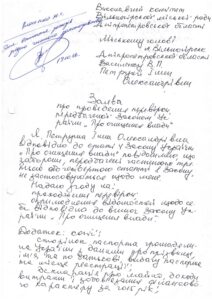 Виконавчий комітет
міської ради
Дніпропетровської області
Міському голові
Дніпропетровської області
Петрунд Інни
Олександрівни
Заява
про проведення перевірки,
передбаченої Законом Ук-
раїни „Про очищення влади"
Я, Інна Олександрівна
відповідно до статті 4 Закону України
„Про очищення влади" повідомляю, що
заборони, передбачені частиною тре-
тьою або четвертою статті 1 Закону
не застосовуються щодо мене.
Надаю згоду на:
проходження перевірки;
оприлюднення відомостей щодо се-
бе відповідно до вимог Закону Ук-
раїни „Про очищення влади".
Додаток: копії
сторінок паспорта громадяни-
на України з даними про прізвище,
ім'я, та по батькові, видачу паспорта
та місце реєстрації;
декларація про майно, доходи
витрати і зобов'язання фінансово-
го характеру за рік;